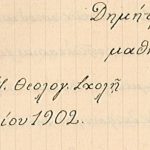 Δημήτ
μαθ
Θεολογ. Σχολῇ
ίου 1902.